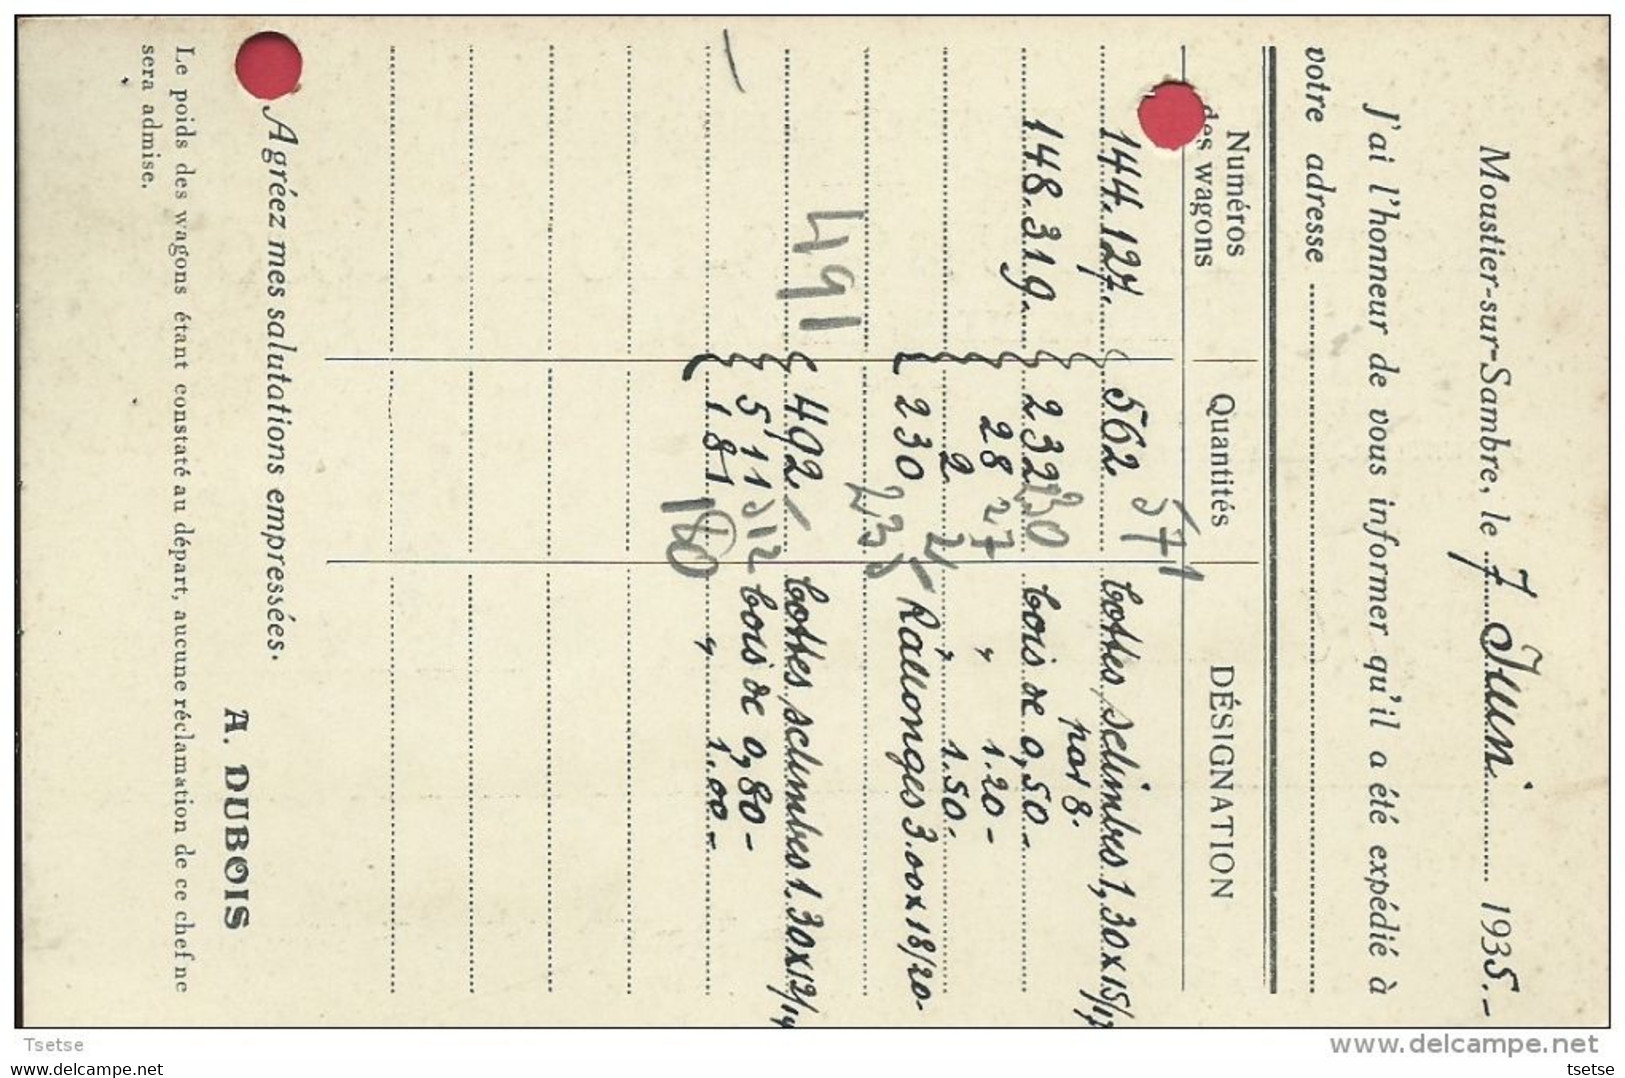 Moustier-sur-Sambre, le 7 Juin 1935.-
J'ai l'honneur de vous informer qu'il a été expédié à
votre adresse
Numéros des wagons Quantités DÉSIGNATION
571
144.127. 562. bottes, selimbes 1,30 x 15/17
par 8.
148.319. 232 230 bois de 0,50.-
28 27 " 1.20-
2 2 " 1.50.-
230 235 Rallonges 3.00 x 18/20.
491
492 bottes, selimbes 1.30 x 12/14
511 512 bois de 0,80-
181 180 " 1.00-
Agréez mes salutations empressées.
A. DUBOIS
Le poids des wagons étant constaté au départ, aucune réclamation de ce chef ne
sera admise.
Tsetse
www.delcampe.net
tsetse
www.delcampe.net
tsetse